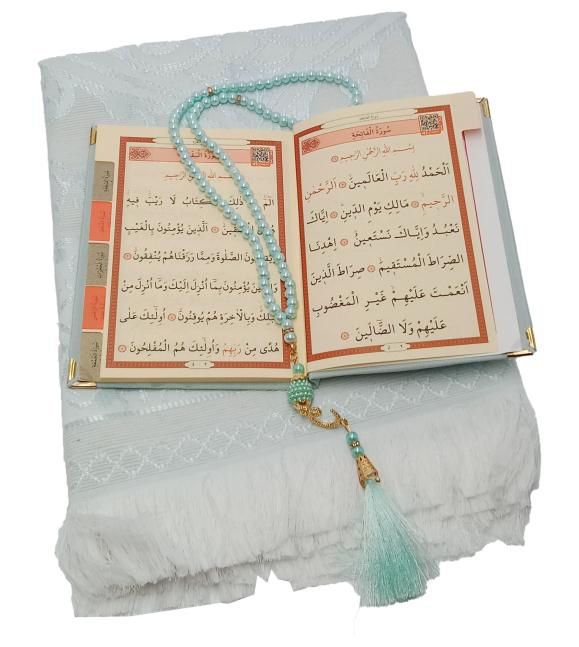 سُورَةُ الْفَاتِحَةِ
بِسْمِ اللّٰهِ الرَّحْمٰنِ الرَّحِيمِ
اَلْحَمْدُ لِلّٰهِ رَبِّ الْعَالَمِينَ اَلرَّحْمٰنِ
الرَّحِيمِ مَالِكِ يَوْمِ الدِّينِ اِيَّاكَ
نَعْبُدُ وَاِيَّاكَ نَسْتَعِينُ اِهْدِنَا
الصِّرَاطَ الْمُسْتَقِيمَ صِرَاطَ الَّذِينَ
اَنْعَمْتَ عَلَيْهِمْ غَيْرِ الْمَغْضُوبِ
عَلَيْهِمْ وَلَا الضَّالِّينَ
الٓمٓ ذٰلِكَ الْكِتَابُ لَا رَيْبَ فِيهِ
اَلَّذِينَ يُؤْمِنُونَ بِالْغَيْبِ
الصَّلٰوةَ وَمِمَّا رَزَقْنَاهُمْ يُنْفِقُونَ
يُؤْمِنُونَ بِمَا اُنْزِلَ اِلَيْكَ وَمَا اُنْزِلَ مِنْ
وَبِالْاٰخِرَةِ هُمْ يُوقِنُونَ اُولٰئِكَ عَلٰى
هُدًى مِنْ رَبِّهِمْ وَاُولٰئِكَ هُمُ الْمُفْلِحُونَ